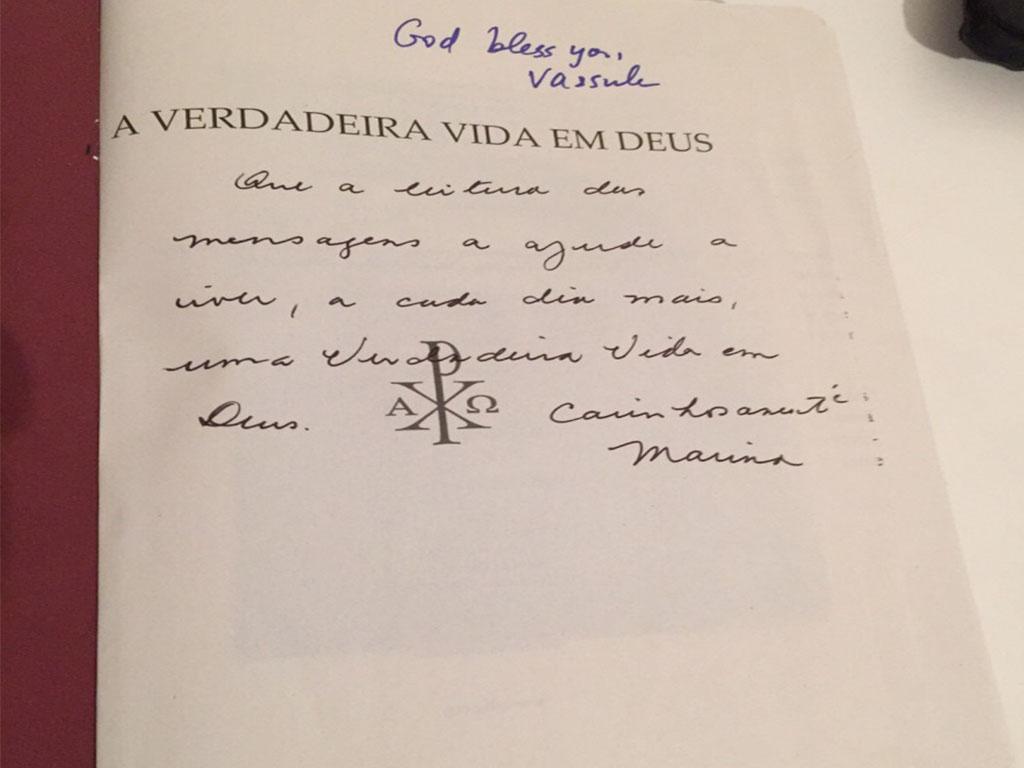 God bless you,
Vassula
A VERDADEIRA VIDA EM DEUS
Que a leitura das
mensagens a ajude a
viver, a cada dia mais,
uma Verdadeira Vida em
Deus.
Α Ω
Carinhosamente
Marina